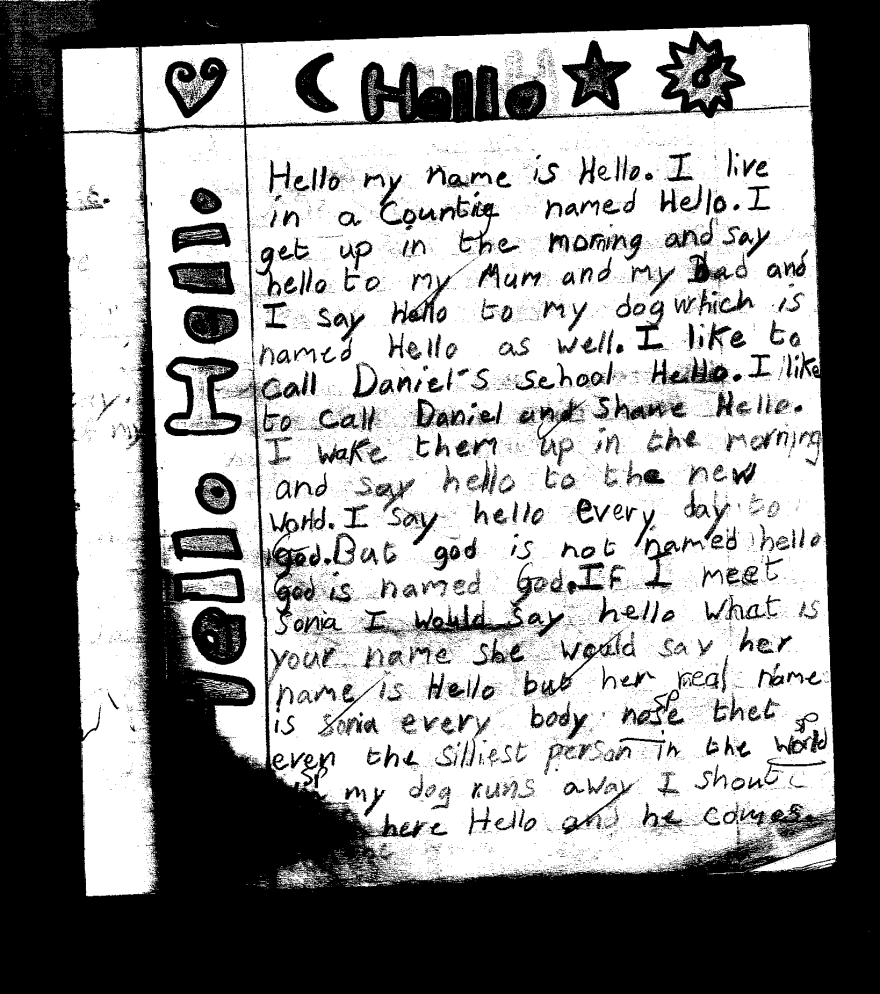 Hello
Hello Hello.
Hello my name is Hello. I live
in a named Hello. I
get up in the morning and say
hello to my Mum and my Dad and
I say Hello to my dog which is
named Hello as well. I like to
call Daniel's school Hello. I like
to call Daniel and Shane Hello.
I wake them up in the morning
and say hello to the new
world. I say hello every day to
god. But god is not named hello
god is named God. If I meet
Sonia I would say hello what is
your name she would say her
name is Hello but her real name
is Sonia every body nose thet
sp
even the silliest person in the world
sp
sp
my dog runs away I shout
here Hello and he comes.